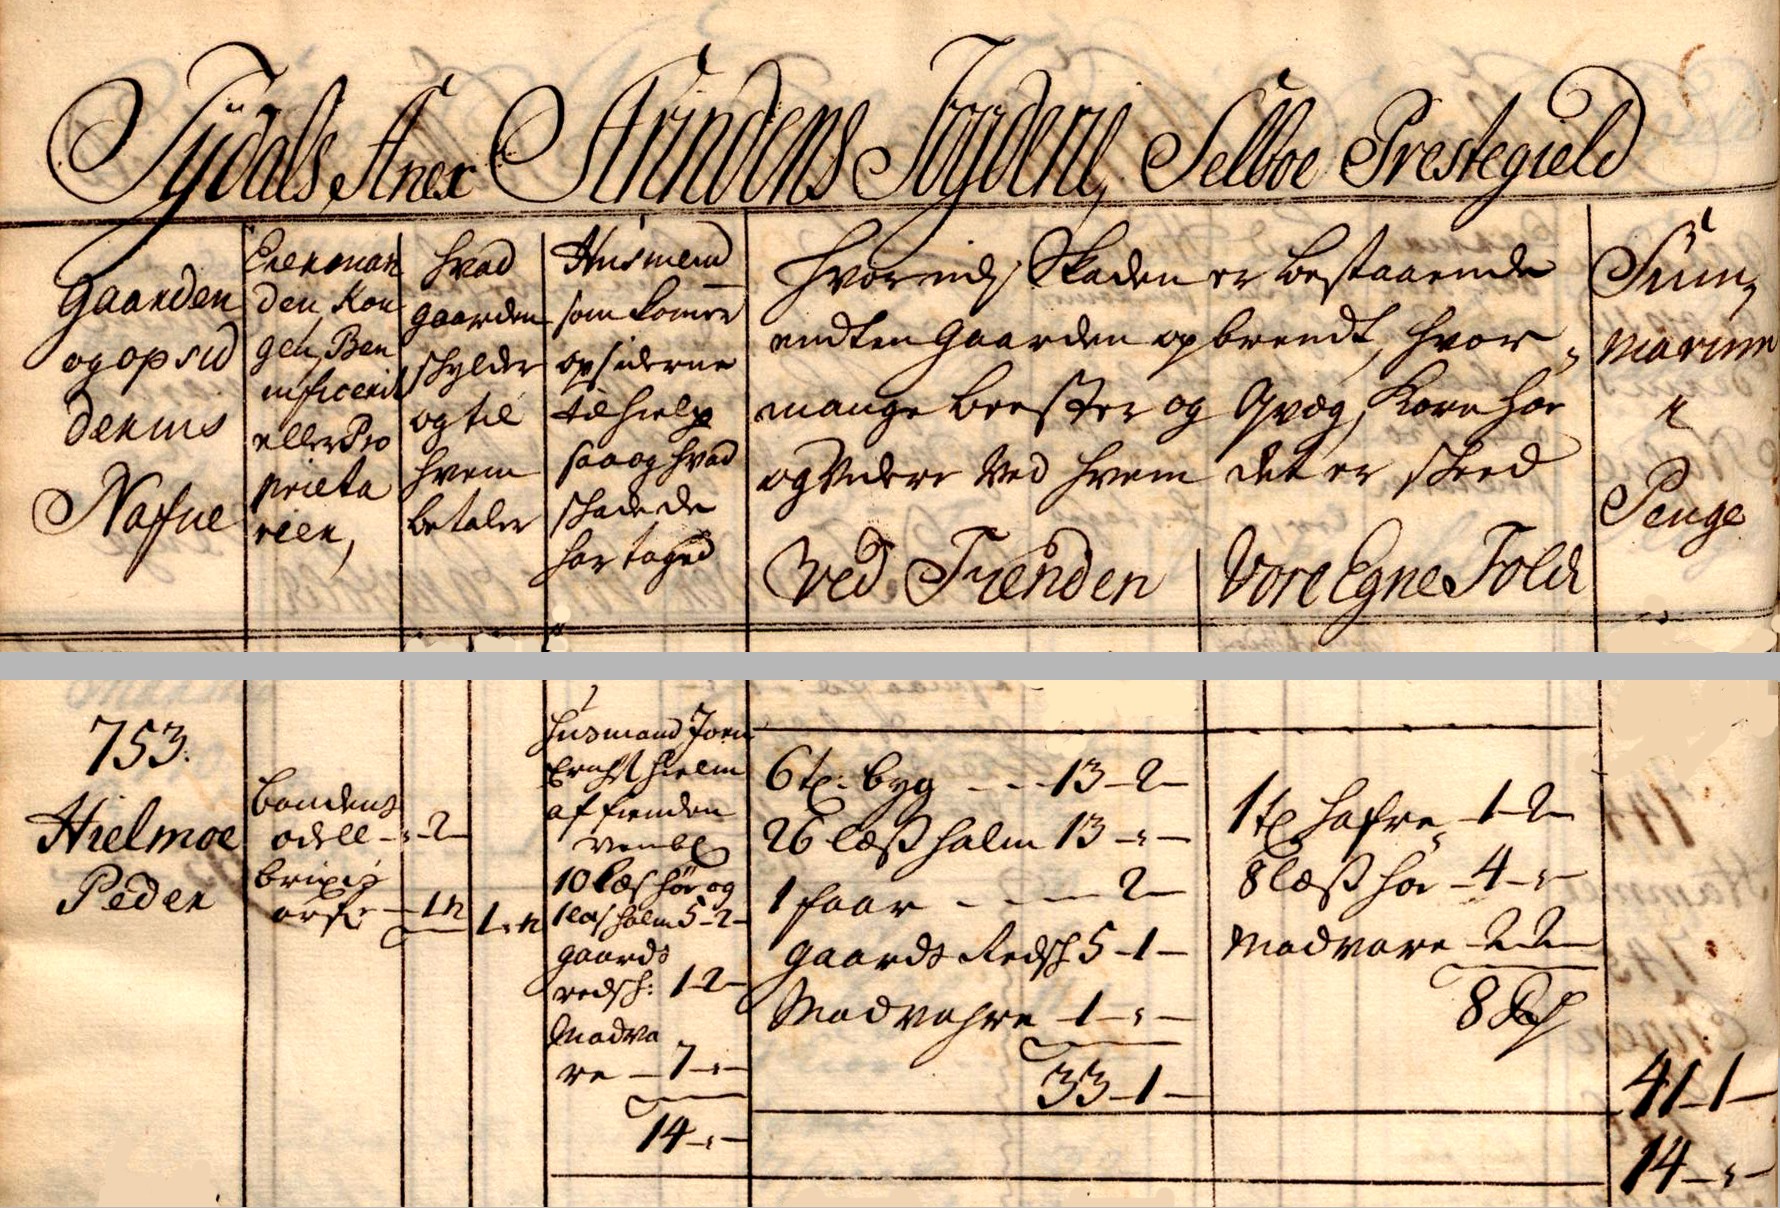 Tÿdals Anex Strindens Fogderie, Selboe Prestegield
Gaarden
og opsid
dernis
Nafne
Eier man
den, Kon
gen, Ben
nificerit
eller Pro
prieta
rien,
hvad
gaarden
skylder
og til
hvem
betaler
Husmend
som komer
opsiderne
til hielp
saa og hvad
skade de
har taged
Hvor udj Skaden er bestaaende
endten gaarden opbrendt, hvor
mange bester og Qvæg, Korn høe
og videre ved hvem det er skeed
Ved Fienden
Vore Egne Folch
Sum,
marum
i
Penge
753.
Hielmoe
Peder
bondens
odell - 2 -
brixis
- 1 n
1 - n
Husmand Joen
hielm
af fienden
10 Læs høe og
1 læs halm 5 - 2 -
gaards
redsk: 1 - 2 -
Madva
re - 7 - " -
14 - " -
6 tr. byg - - - 13 - 2 -
26 læss halm 13 - " -
1 faar - - - - 2 -
gaards Redsk 5 - 1 -
Madvahre - 1 - " -
33 - 1 -
1 tr hafre - 1 - 2 -
8 læss høe - 4 - " -
Madvare - 2 - 2 -
8 Rdr
41 - 1 -
14 - " -